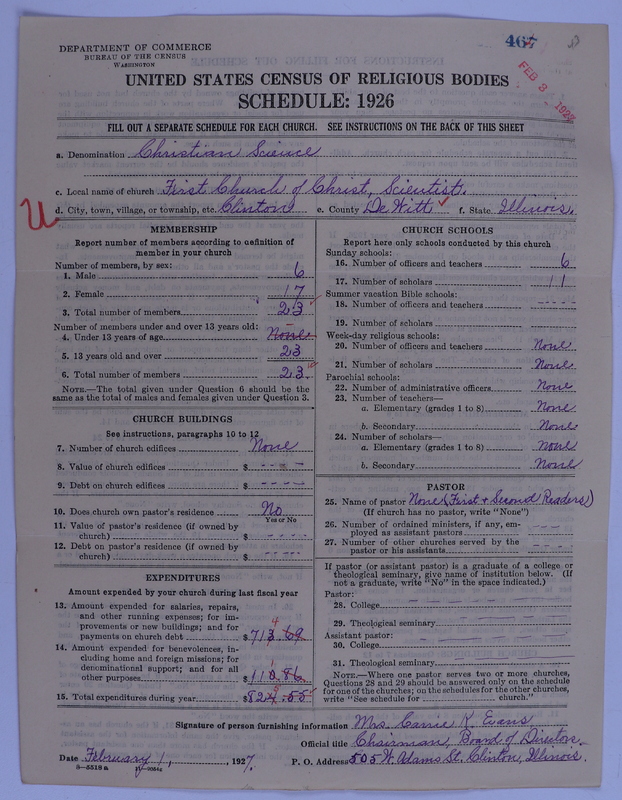 DEPARTMENT OF COMMERCE
BUREAU OF THE CENSUS
WASHINGTON
467
FEB 3 - 1927
UNITED STATES CENSUS OF RELIGIOUS BODIES
SCHEDULE: 1926
FILL OUT A SEPARATE SCHEDULE FOR EACH CHURCH. SEE INSTRUCTIONS ON THE BACK OF THIS SHEET
a. Denomination Christian Science
c. Local name of church First Church of Christ, Scientist.
U
d. City, town, village, or township, etc. Clinton e. County De Witt f. State Illinois.
MEMBERSHIP
Report number of members according to definition of
member in your church
Number of members, by sex:
1. Male 6
2. Female 17
3. Total number of members 23
Number of members under and over 13 years old:
4. Under 13 years of age None
5. 13 years old and over 23
6. Total number of members 23
NOTE.—The total given under Question 6 should be the
same as the total of males and females given under Question 3.
CHURCH BUILDINGS
See instructions, paragraphs 10 to 12
7. Number of church edifices None
8. Value of church edifices $ ----
9. Debt on church edifices $ ----
10. Does church own pastor's residence No
Yes or No
11. Value of pastor's residence (if owned by
church) $ ----
12. Debt on pastor's residence (if owned by
church) $ ----
EXPENDITURES
Amount expended by your church during last fiscal year
13. Amount expended for salaries, repairs,
and other running expenses; for im-
provements or new buildings; and for
payments on church debt $ 713.69
4
14. Amount expended for benevolences, in-
cluding home and foreign missions; for
denominational support; and for all
other purposes $ 110.86
1
15. Total expenditures during year $ 824.55
CHURCH SCHOOLS
Report here only schools conducted by this church
Sunday schools:
16. Number of officers and teachers 6
17. Number of scholars 11
Summer vacation Bible schools:
18. Number of officers and teachers ----
19. Number of scholars
Week-day religious schools:
20. Number of officers and teachers None
21. Number of scholars None
Parochial schools:
22. Number of administrative officers None
23. Number of teachers—
a. Elementary (grades 1 to 8) None
b. Secondary None
24. Number of scholars—
a. Elementary (grades 1 to 8) None
b. Secondary None
PASTOR
25. Name of pastor None (First + Second Readers)
(If church has no pastor, write "None")
26. Number of ordained ministers, if any, em-
ployed as assistant pastors ----
27. Number of other churches served by the
pastor or his assistants ----
If pastor (or assistant pastor) is a graduate of a college or
theological seminary, give name of institution below. (If
not a graduate, write "No" in the space indicated.)
Pastor:
28. College
29. Theological seminary
Assistant pastor:
30. College
31. Theological seminary
NOTE.—Where one pastor serves two or more churches,
Questions 28 and 29 should be answered only on the schedule
for one of the churches; on the schedules for the other churches,
write "See schedule for church."
Signature of person furnishing information Mrs. Carrie K. Evans
Official title Chairman, Board of Directors.
Date February 1, 1927. P. O. Address 505 W. Adams St. Clinton, Illinois.